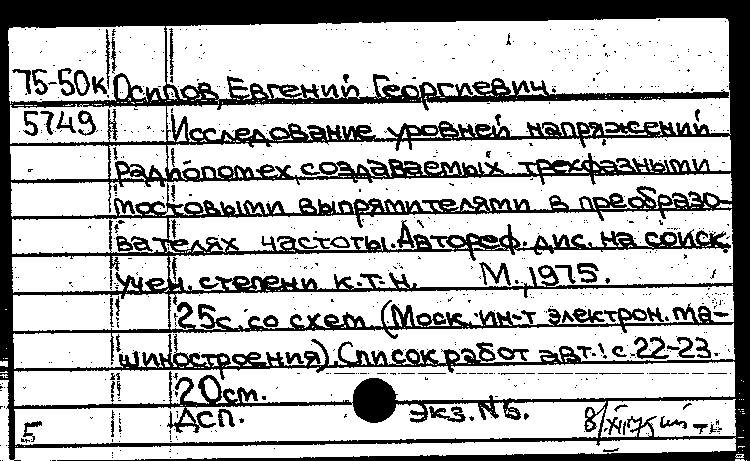 75-50к Осипов, Евгений Георгиевич.
5749 Исследование уровней напряжений
радиопомех, создаваемых трехфазными
мостовыми выпрямителями в преобразо-
вателях частоты. Автореф. дис. на соиск.
учен. степени к.т.н. М., 1975.
25с. со схем. (Моск. ин-т электрон. ма-
шиностроения). Список работ авт.: с. 22-23.
20см.
ДСП. Экз. №5.
5 8/XII75